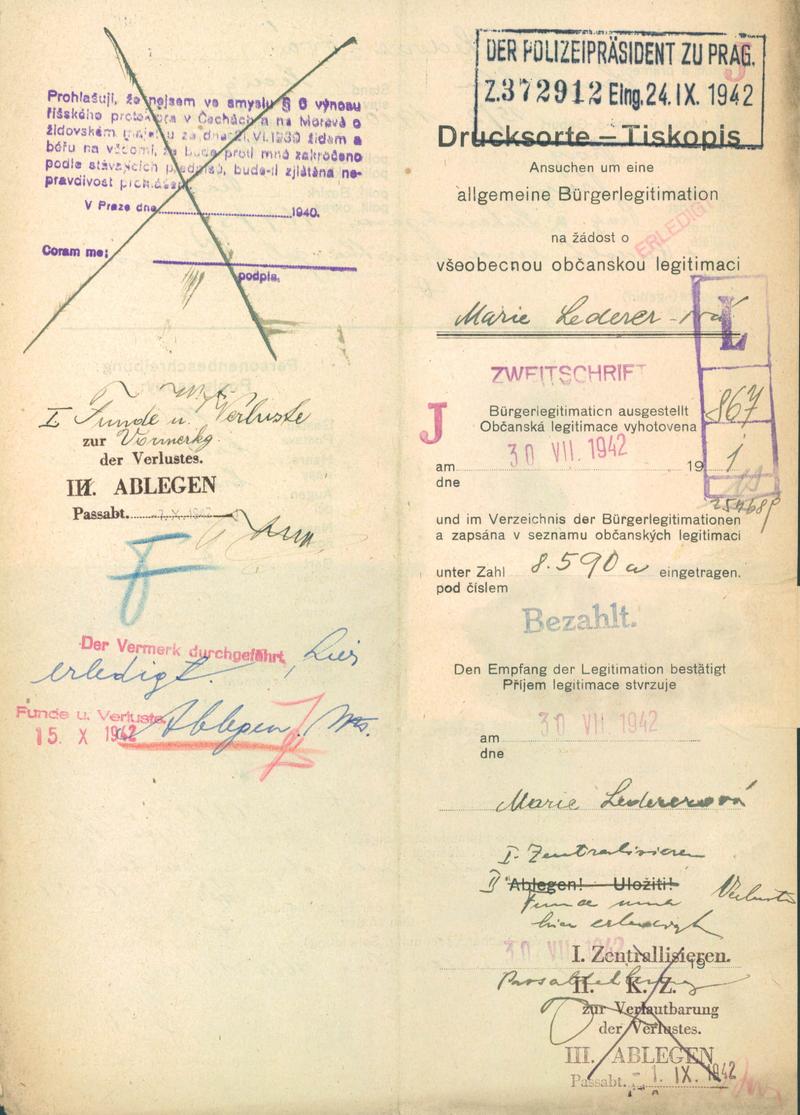 Prohlašuji, že nejsem ve smyslu § 6 výnosu
říšského protektora v Čechách a na Moravě o
židovském majetku ze dne 21. VI. 1939 židem a
béřu na vědomí, že bude proti mně zakročeno
podle stávajících předpisů, bude-li zjištěna ne-
pravdivost prohlášení.
V Praze dne 1940.
Coram me:
podpis.
I Funde u. Verluste
zur Vormerkg.
der Verlustes.
III. ABLEGEN
Passabt.
Der Vermerk durchgeführt
hier
erledigt.
Funde u. Verluste
15. X 1942
Ablegen!
DER POLIZEIPRÄSIDENT ZU PRAG.
Z. 372912 Eing. 24. IX. 1942
J
Drucksorte – Tiskopis
Ansuchen um eine
allgemeine Bürgerlegitimation
na žádost o
ERLEDIGT
všeobecnou občanskou legitimaci
Marie Lederer-ová
L
ZWEITSCHRIFT
867
J
Bürgerlegitimation ausgestellt
Občanská legitimace vyhotovena
am 30 VII. 1942 19
1
dne
und im Verzeichnis der Bürgerlegitimationen
a zapsána v seznamu občanských legitimací
unter Zahl 8.590 a eingetragen.
pod číslem
Bezahlt.
Den Empfang der Legitimation bestätigt
Příjem legitimace stvrzuje
am 30 VII. 1942
dne
Marie Ledererová
I. Zentralisieren
II Ablegen! Uložiti!
Verluste
hier erledigt
30 VII 1942 19
I. Zentrallisieren.
II. K. Z.
zur Verlautbarung
der Verlustes.
III. ABLEGEN
Passabt. - 1. IX. 1942